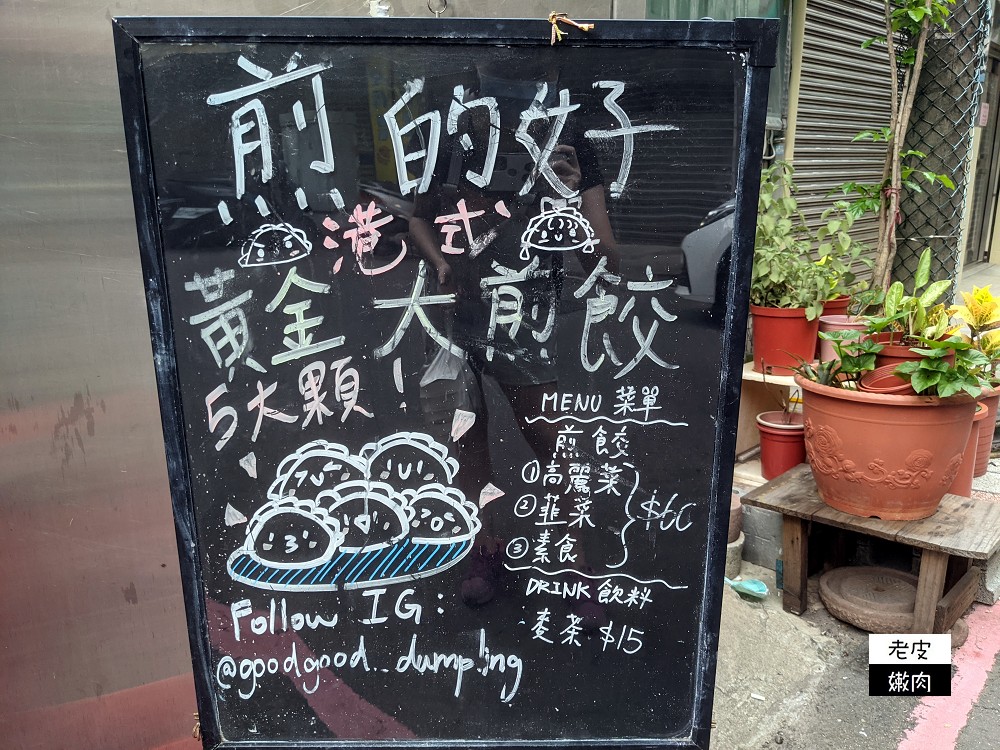 煎的好
港式
黃金大煎餃
5大顆！
MENU 菜單
煎餃
①高麗菜
②韮菜
③素食
$60
DRINK 飲料
麥茶 $15
Follow IG:
@goodgood._dumpling
老皮
嫩肉